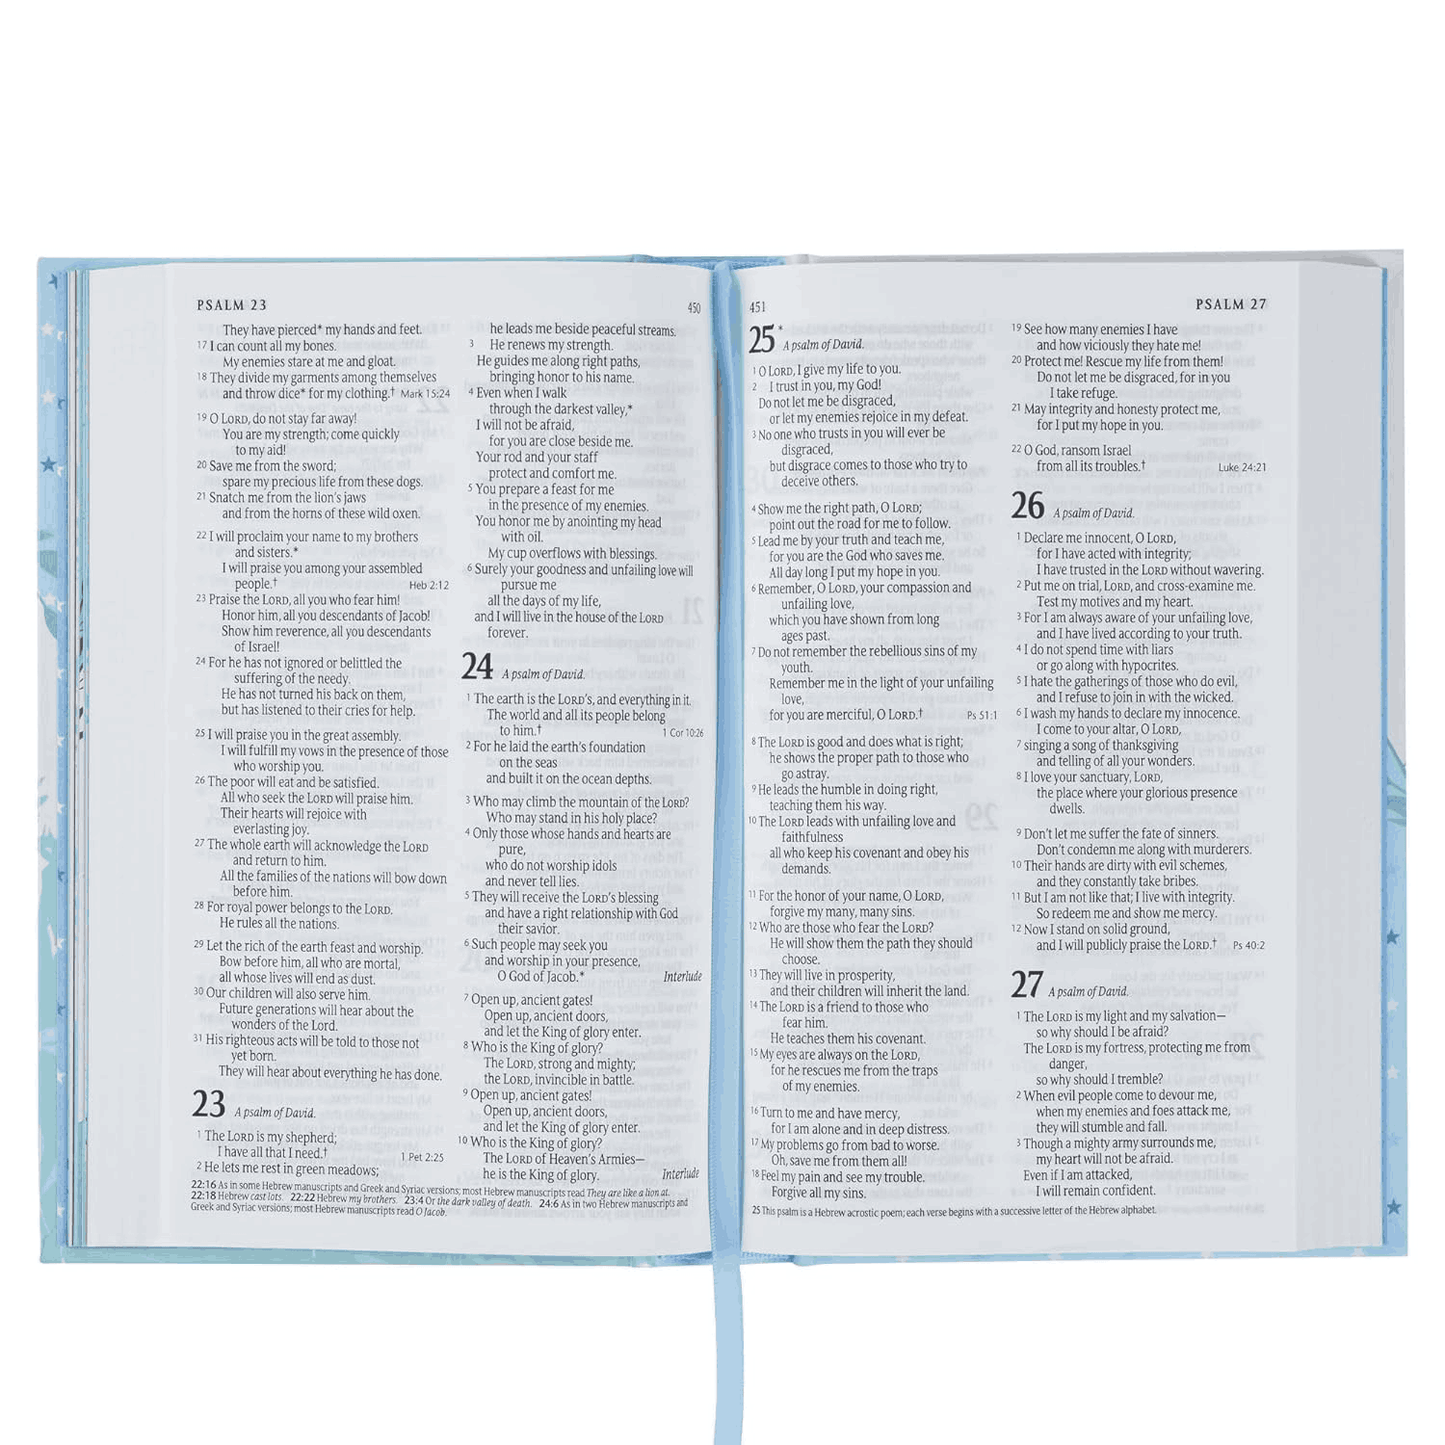 PSALM 23
450
They have pierced* my hands and feet.
17 I can count all my bones.
My enemies stare at me and gloat.
18 They divide my garments among themselves
and throw dice* for my clothing.† Mark 15:24
19 O LORD, do not stay far away!
You are my strength; come quickly
to my aid!
20 Save me from the sword;
spare my precious life from these dogs.
21 Snatch me from the lion's jaws
and from the horns of these wild oxen.
22 I will proclaim your name to my brothers
and sisters.*
I will praise you among your assembled
people.† Heb 2:12
23 Praise the LORD, all you who fear him!
Honor him, all you descendants of Jacob!
Show him reverence, all you descendants
of Israel!
24 For he has not ignored or belittled the
suffering of the needy.
He has not turned his back on them,
but has listened to their cries for help.
25 I will praise you in the great assembly.
I will fulfill my vows in the presence of those
who worship you.
26 The poor will eat and be satisfied.
All who seek the LORD will praise him.
Their hearts will rejoice with
everlasting joy.
27 The whole earth will acknowledge the LORD
and return to him.
All the families of the nations will bow down
before him.
28 For royal power belongs to the LORD.
He rules all the nations.
29 Let the rich of the earth feast and worship.
Bow before him, all who are mortal,
all whose lives will end as dust.
30 Our children will also serve him.
Future generations will hear about the
wonders of the Lord.
31 His righteous acts will be told to those not
yet born.
They will hear about everything he has done.
23 A psalm of David.
1 The LORD is my shepherd;
I have all that I need.† 1 Pet 2:25
2 He lets me rest in green meadows;
he leads me beside peaceful streams.
3 He renews my strength.
He guides me along right paths,
bringing honor to his name.
4 Even when I walk
through the darkest valley,*
I will not be afraid,
for you are close beside me.
Your rod and your staff
protect and comfort me.
5 You prepare a feast for me
in the presence of my enemies.
You honor me by anointing my head
with oil.
My cup overflows with blessings.
6 Surely your goodness and unfailing love will
pursue me
all the days of my life,
and I will live in the house of the LORD
forever.
24 A psalm of David.
1 The earth is the LORD's, and everything in it.
The world and all its people belong
to him.† 1 Cor 10:26
2 For he laid the earth's foundation
on the seas
and built it on the ocean depths.
3 Who may climb the mountain of the LORD?
Who may stand in his holy place?
4 Only those whose hands and hearts are
pure,
who do not worship idols
and never tell lies.
5 They will receive the LORD's blessing
and have a right relationship with God
their savior.
6 Such people may seek you
and worship in your presence,
O God of Jacob.* Interlude
7 Open up, ancient gates!
Open up, ancient doors,
and let the King of glory enter.
8 Who is the King of glory?
The LORD, strong and mighty;
the LORD, invincible in battle.
9 Open up, ancient gates!
Open up, ancient doors,
and let the King of glory enter.
10 Who is the King of glory?
The LORD of Heaven's Armies—
he is the King of glory. Interlude
22:16 As in some Hebrew manuscripts and Greek and Syriac versions; most Hebrew manuscripts read They are like a lion at.
22:18 Hebrew cast lots. 22:22 Hebrew my brothers. 23:4 Or the dark valley of death. 24:6 As in two Hebrew manuscripts and
Greek and Syriac versions; most Hebrew manuscripts read O Jacob.
451
PSALM 27
25* A psalm of David.
1 O LORD, I give my life to you.
2 I trust in you, my God!
Do not let me be disgraced,
or let my enemies rejoice in my defeat.
3 No one who trusts in you will ever be
disgraced,
but disgrace comes to those who try to
deceive others.
4 Show me the right path, O LORD;
point out the road for me to follow.
5 Lead me by your truth and teach me,
for you are the God who saves me.
All day long I put my hope in you.
6 Remember, O LORD, your compassion and
unfailing love,
which you have shown from long
ages past.
7 Do not remember the rebellious sins of my
youth.
Remember me in the light of your unfailing
love,
for you are merciful, O LORD.† Ps 51:1
8 The LORD is good and does what is right;
he shows the proper path to those who
go astray.
9 He leads the humble in doing right,
teaching them his way.
10 The LORD leads with unfailing love and
faithfulness
all who keep his covenant and obey his
demands.
11 For the honor of your name, O LORD,
forgive my many, many sins.
12 Who are those who fear the LORD?
He will show them the path they should
choose.
13 They will live in prosperity,
and their children will inherit the land.
14 The LORD is a friend to those who
fear him.
He teaches them his covenant.
15 My eyes are always on the LORD,
for he rescues me from the traps
of my enemies.
16 Turn to me and have mercy,
for I am alone and in deep distress.
17 My problems go from bad to worse.
Oh, save me from them all!
18 Feel my pain and see my trouble.
Forgive all my sins.
19 See how many enemies I have
and how viciously they hate me!
20 Protect me! Rescue my life from them!
Do not let me be disgraced, for in you
I take refuge.
21 May integrity and honesty protect me,
for I put my hope in you.
22 O God, ransom Israel
from all its troubles.† Luke 24:21
26 A psalm of David.
1 Declare me innocent, O LORD,
for I have acted with integrity;
I have trusted in the LORD without wavering.
2 Put me on trial, LORD, and cross-examine me.
Test my motives and my heart.
3 For I am always aware of your unfailing love,
and I have lived according to your truth.
4 I do not spend time with liars
or go along with hypocrites.
5 I hate the gatherings of those who do evil,
and I refuse to join in with the wicked.
6 I wash my hands to declare my innocence.
I come to your altar, O LORD,
7 singing a song of thanksgiving
and telling of all your wonders.
8 I love your sanctuary, LORD,
the place where your glorious presence
dwells.
9 Don't let me suffer the fate of sinners.
Don't condemn me along with murderers.
10 Their hands are dirty with evil schemes,
and they constantly take bribes.
11 But I am not like that; I live with integrity.
So redeem me and show me mercy.
12 Now I stand on solid ground,
and I will publicly praise the LORD.† Ps 40:2
27 A psalm of David.
1 The LORD is my light and my salvation—
so why should I be afraid?
The LORD is my fortress, protecting me from
danger,
so why should I tremble?
2 When evil people come to devour me,
when my enemies and foes attack me,
they will stumble and fall.
3 Though a mighty army surrounds me,
my heart will not be afraid.
Even if I am attacked,
I will remain confident.
25 This psalm is a Hebrew acrostic poem; each verse begins with a successive letter of the Hebrew alphabet.